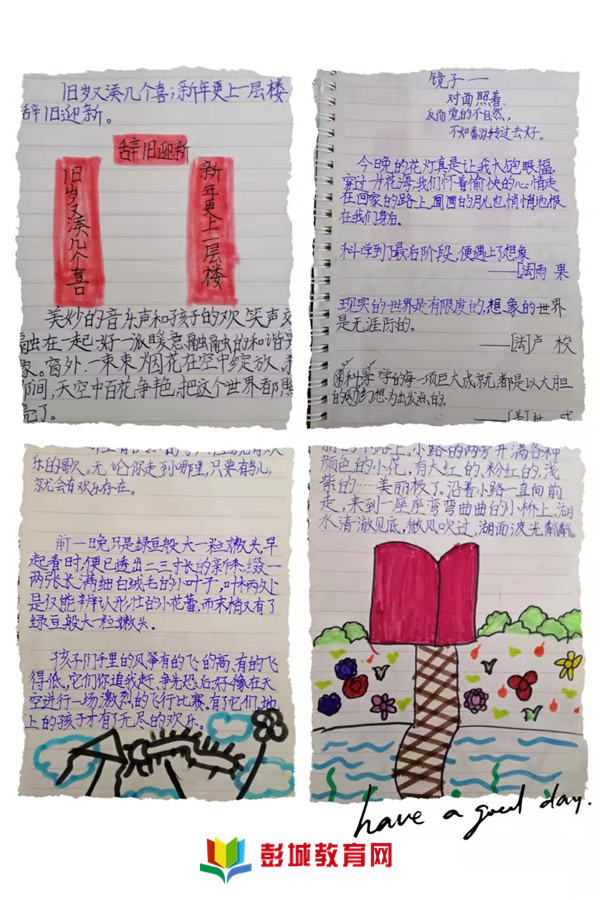 旧岁又凑几个喜;新年更上一层楼
辞旧迎新。
辞旧迎新
旧岁又凑几个喜
新年更上一层楼
美妙的音乐声和孩子的欢笑声交
融在一起,好一派暖意融融的和谐景
象。窗外,一束束烟花在空中绽放,
间,天空中百花争艳,把这个世界都照
亮了。
镜子一
对面照着,
反而觉的不自然,
不如翻转过去好。
今晚的花灯真是让我大饱眼福,
穿过升花海,我们怀着愉快的心情走
在回家的路上,圆圆的月儿也悄悄地跟
在我们身后。
科学到了最后阶段,便遇上了想象
——[法]雨果
现实的世界是有限度的,想象的世界
是无涯际的。
——[法]卢梭
科学的每一项巨大成就,都是以大胆
的幻想为出发点的,
乐的歌。无论你走到哪里,只要有鸟儿,
就会有欢乐存在。
前一晚只是绿豆般大一粒嫩头,早
起看时,便已透出二三寸长的新条,缀一
两张长满细白绒毛的小叶子,叶柄处
是仅能辨认形状的小花蕾,而末梢又有了
绿豆般大一粒嫩头。
孩子们手里的风筝有的飞的高,有的飞
得低,它们你追我赶,争先恐后,好像在天
空进行一场激烈的飞行比赛,有了它们,地
上的孩子才有了无尽的欢乐。
的小路上,小路的两旁开满各种
颜色的小花,有大红的、粉红的,浅
紫的……美丽极了。沿着小路一直向前
走,来到一座座弯弯曲曲的小桥上,湖
水清澈见底,微风吹过,湖面波光粼粼。
have a good day.
彭城教育网